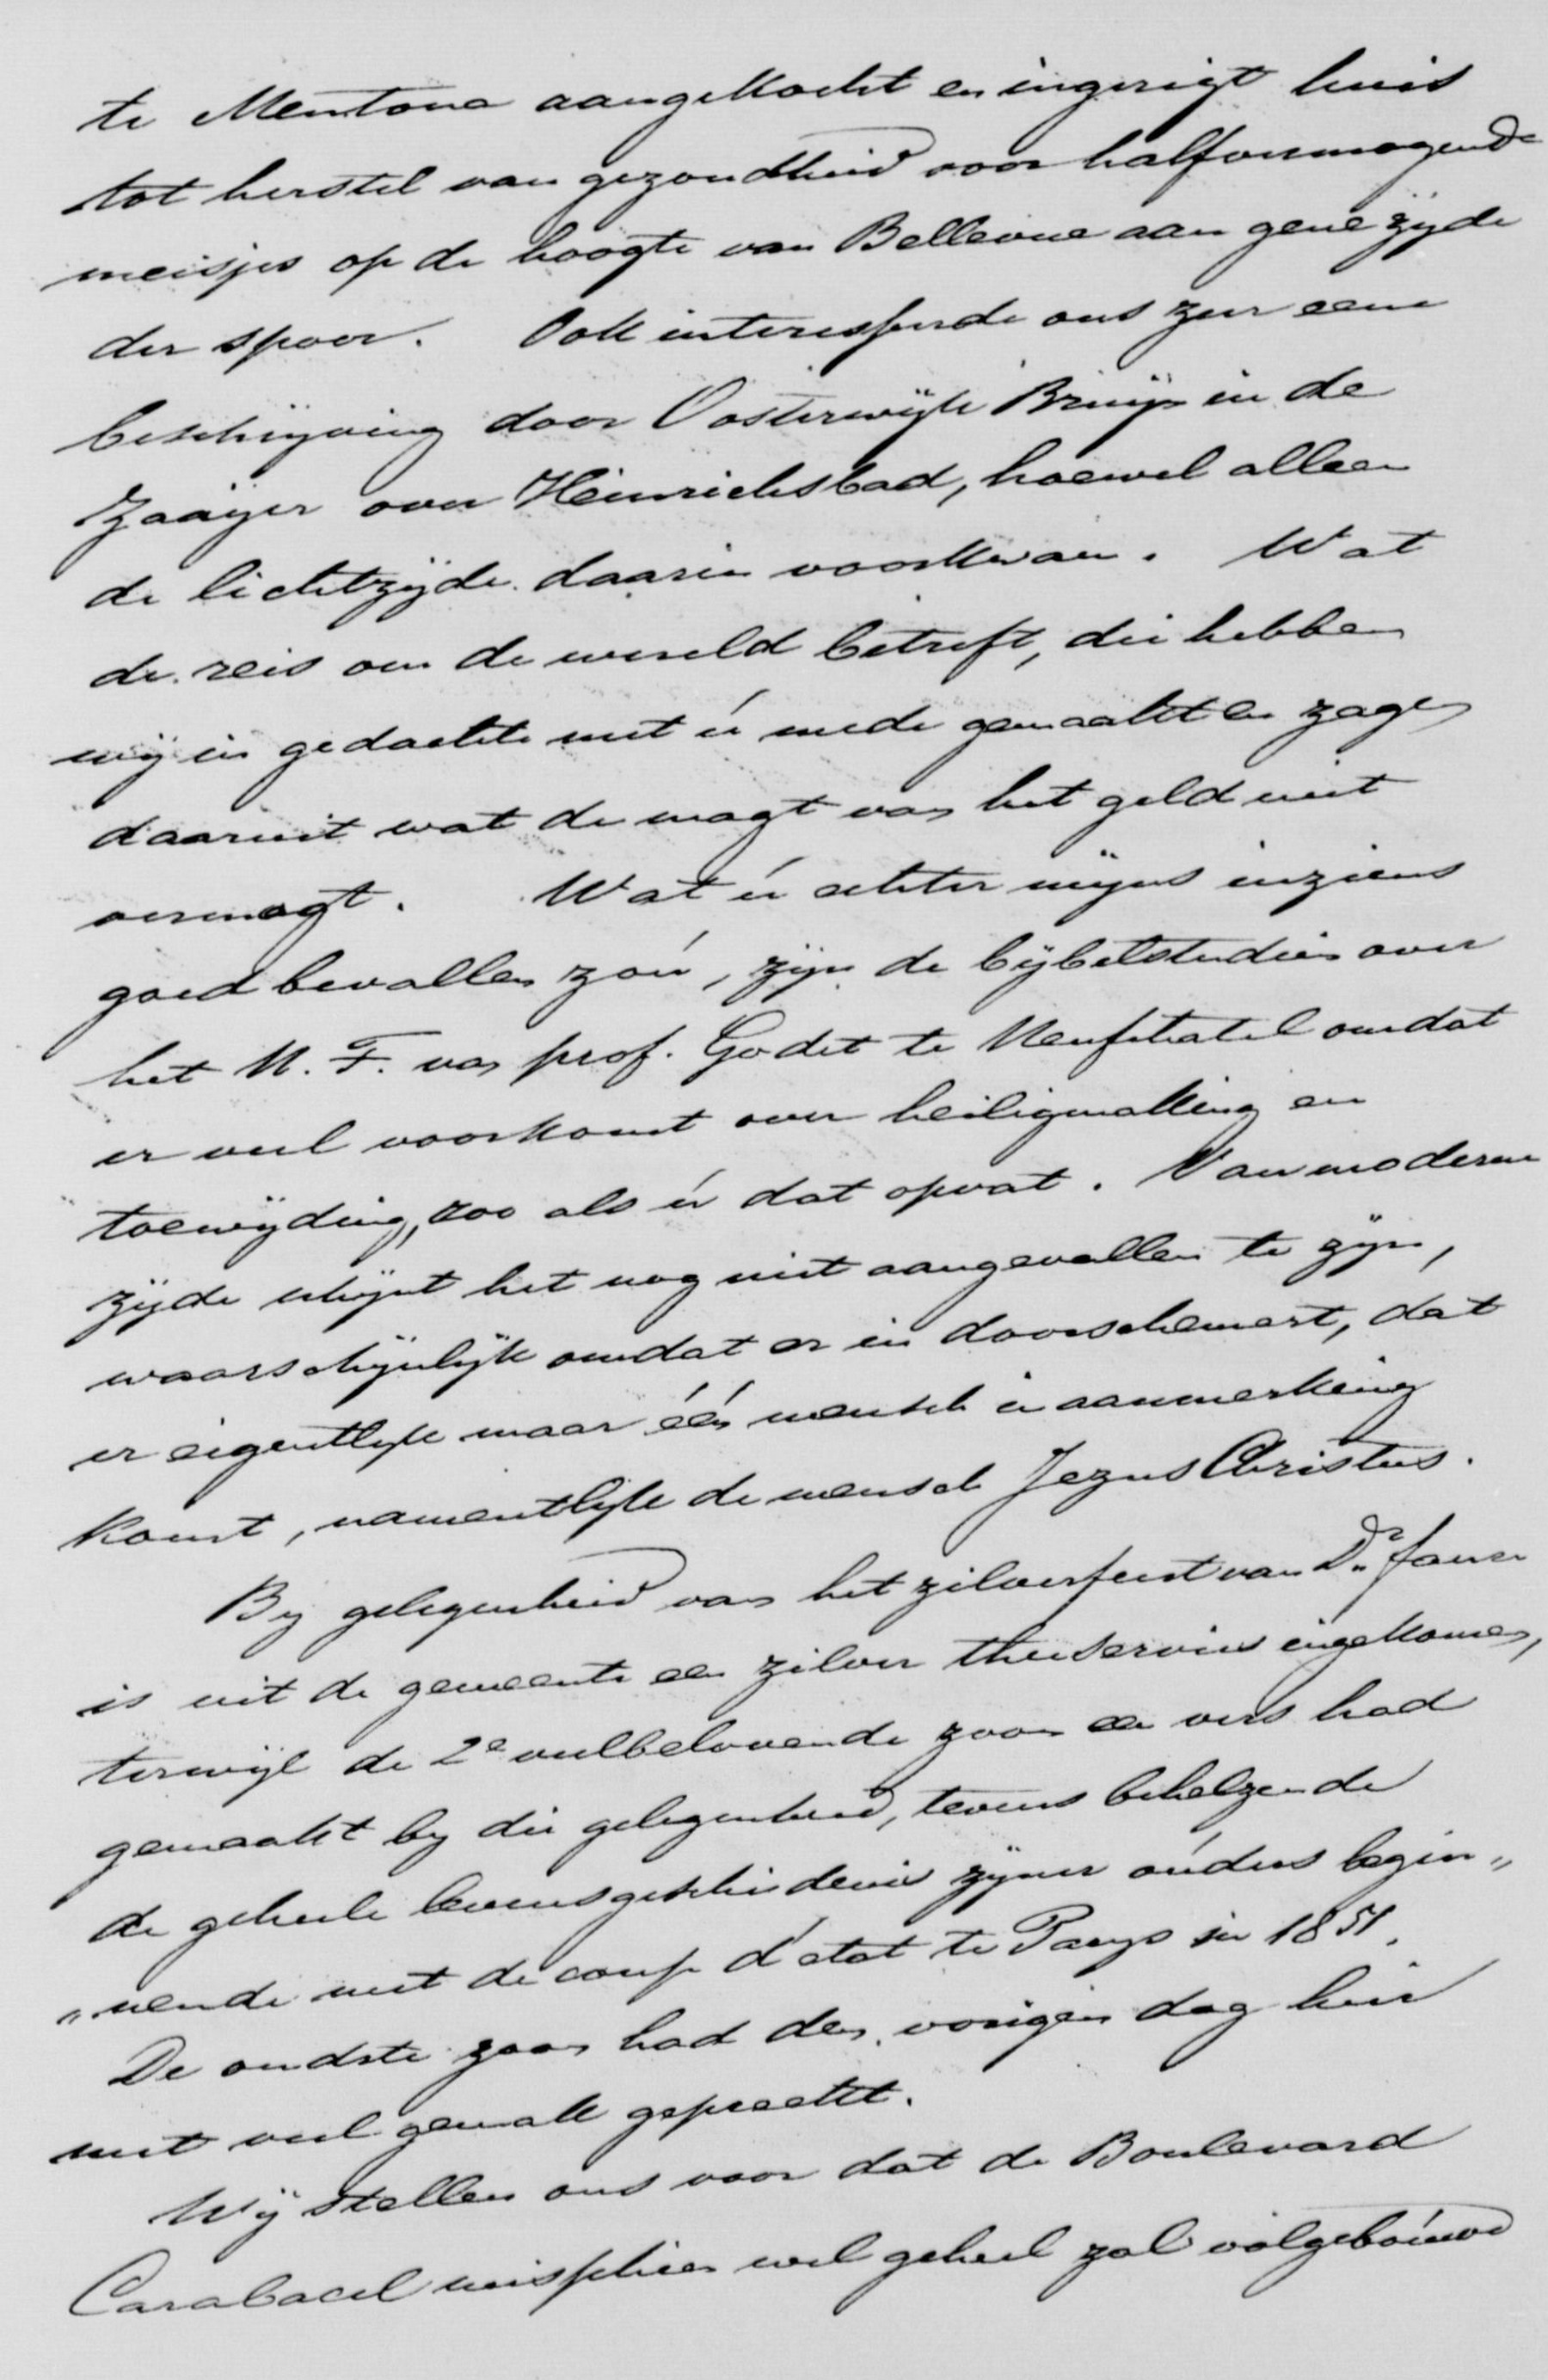 te Mentone aangekocht en ingerigt huis
tot herstel van gezondheid voor halfvermogende
meisjes op de hoogte van Bellevue aan gene zijde
der spoor. Ook interesseerde ons zeer eene
beschrijving door Oosterwijk Bruijn in de
Zaaijer over Heinrichsbad, hoewel alleen
de lichtzijde daarin voorkwam. Wat
de reis om de wereld betreft, die hebben
wij in gedachte met ú mede gemaakt en zagen
daaruit wat de magt van het geld niet
vermogt. Wat ú echter mijns inziens
goed bevallen zoú, zijn de bijbelstudien over
het N. T. van prof. Godet te Neufchatel omdat
er veel voorkomt over heiligmaking en
toewijding, zoo als ú dat opvat. Van moderne
zijde schijnt het nog niet aangevallen te zijn,
waarschijnlijk omdat er in doorschemert, dat
er eigentlijk maar één mensch in aanmerking
komt, namentlijk de mensch Jezus Christus.
By gelegenheid van het zilverfeest van Dr Janse
is uit de gemeente een zilver theeservies ingekomen,
terwijl de 2e veelbelovende zoon een vers had
gemaakt by die gelegenheid, tevens behelzende
de geheele levensgeschiedenis zijner oúders begin„
„nende met de coup d'etat te Parys in 1851.
De oudste zoon had den vorigen dag hier
met veel gemak gepreekt.
Wij stellen ons voor dat de Boulevard
Carabacel misschien wel geheel zal volgeboúwd